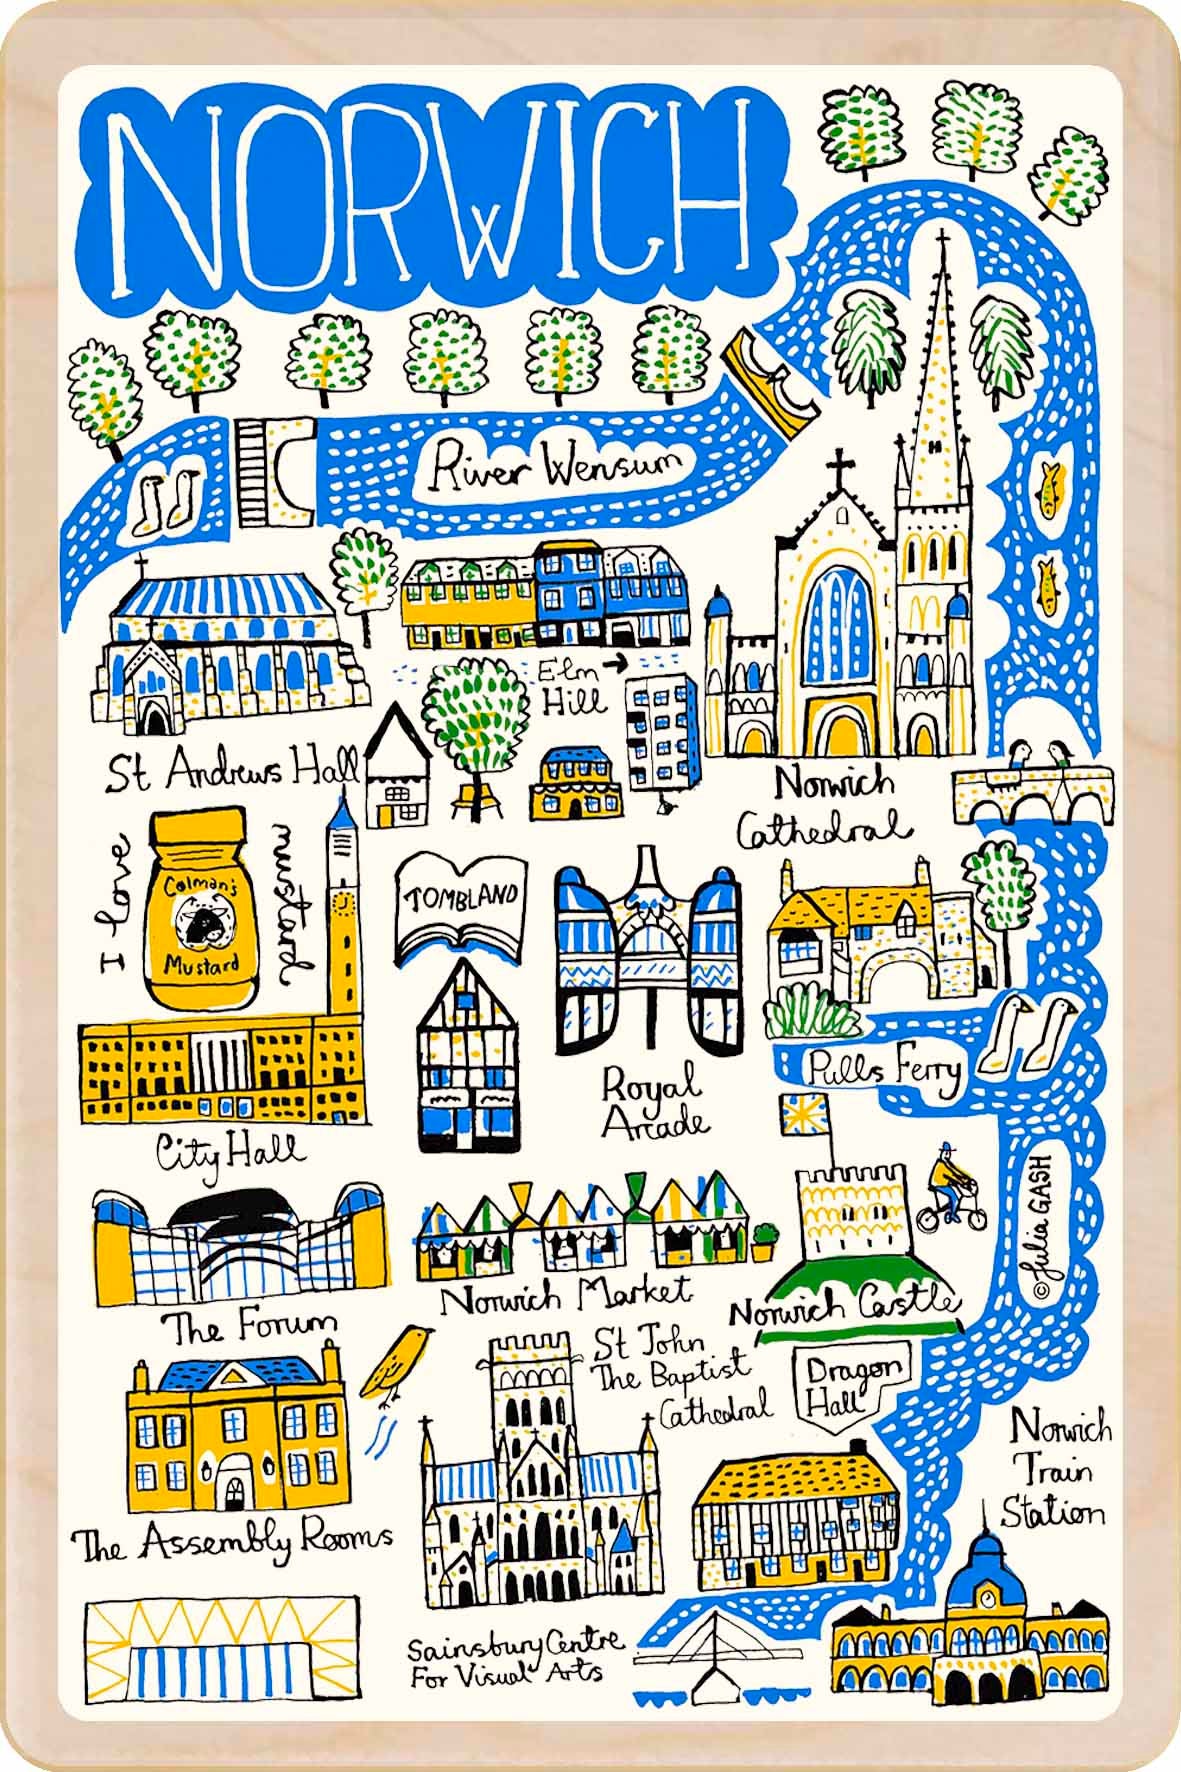 NORWICH
River Wensum
Elm
Hill
St Andrews Hall
Norwich
Cathedral
I love
Colman's
Mustard
mustard
TOMBLAND
Royal
Arcade
Pulls Ferry
City Hall
© Julia GASH
The Forum
Norwich Market
Norwich Castle
St John
The Baptist
Cathedral
Dragon
Hall
Norwich
Train
Station
The Assembly Rooms
Sainsbury Centre
For Visual Arts